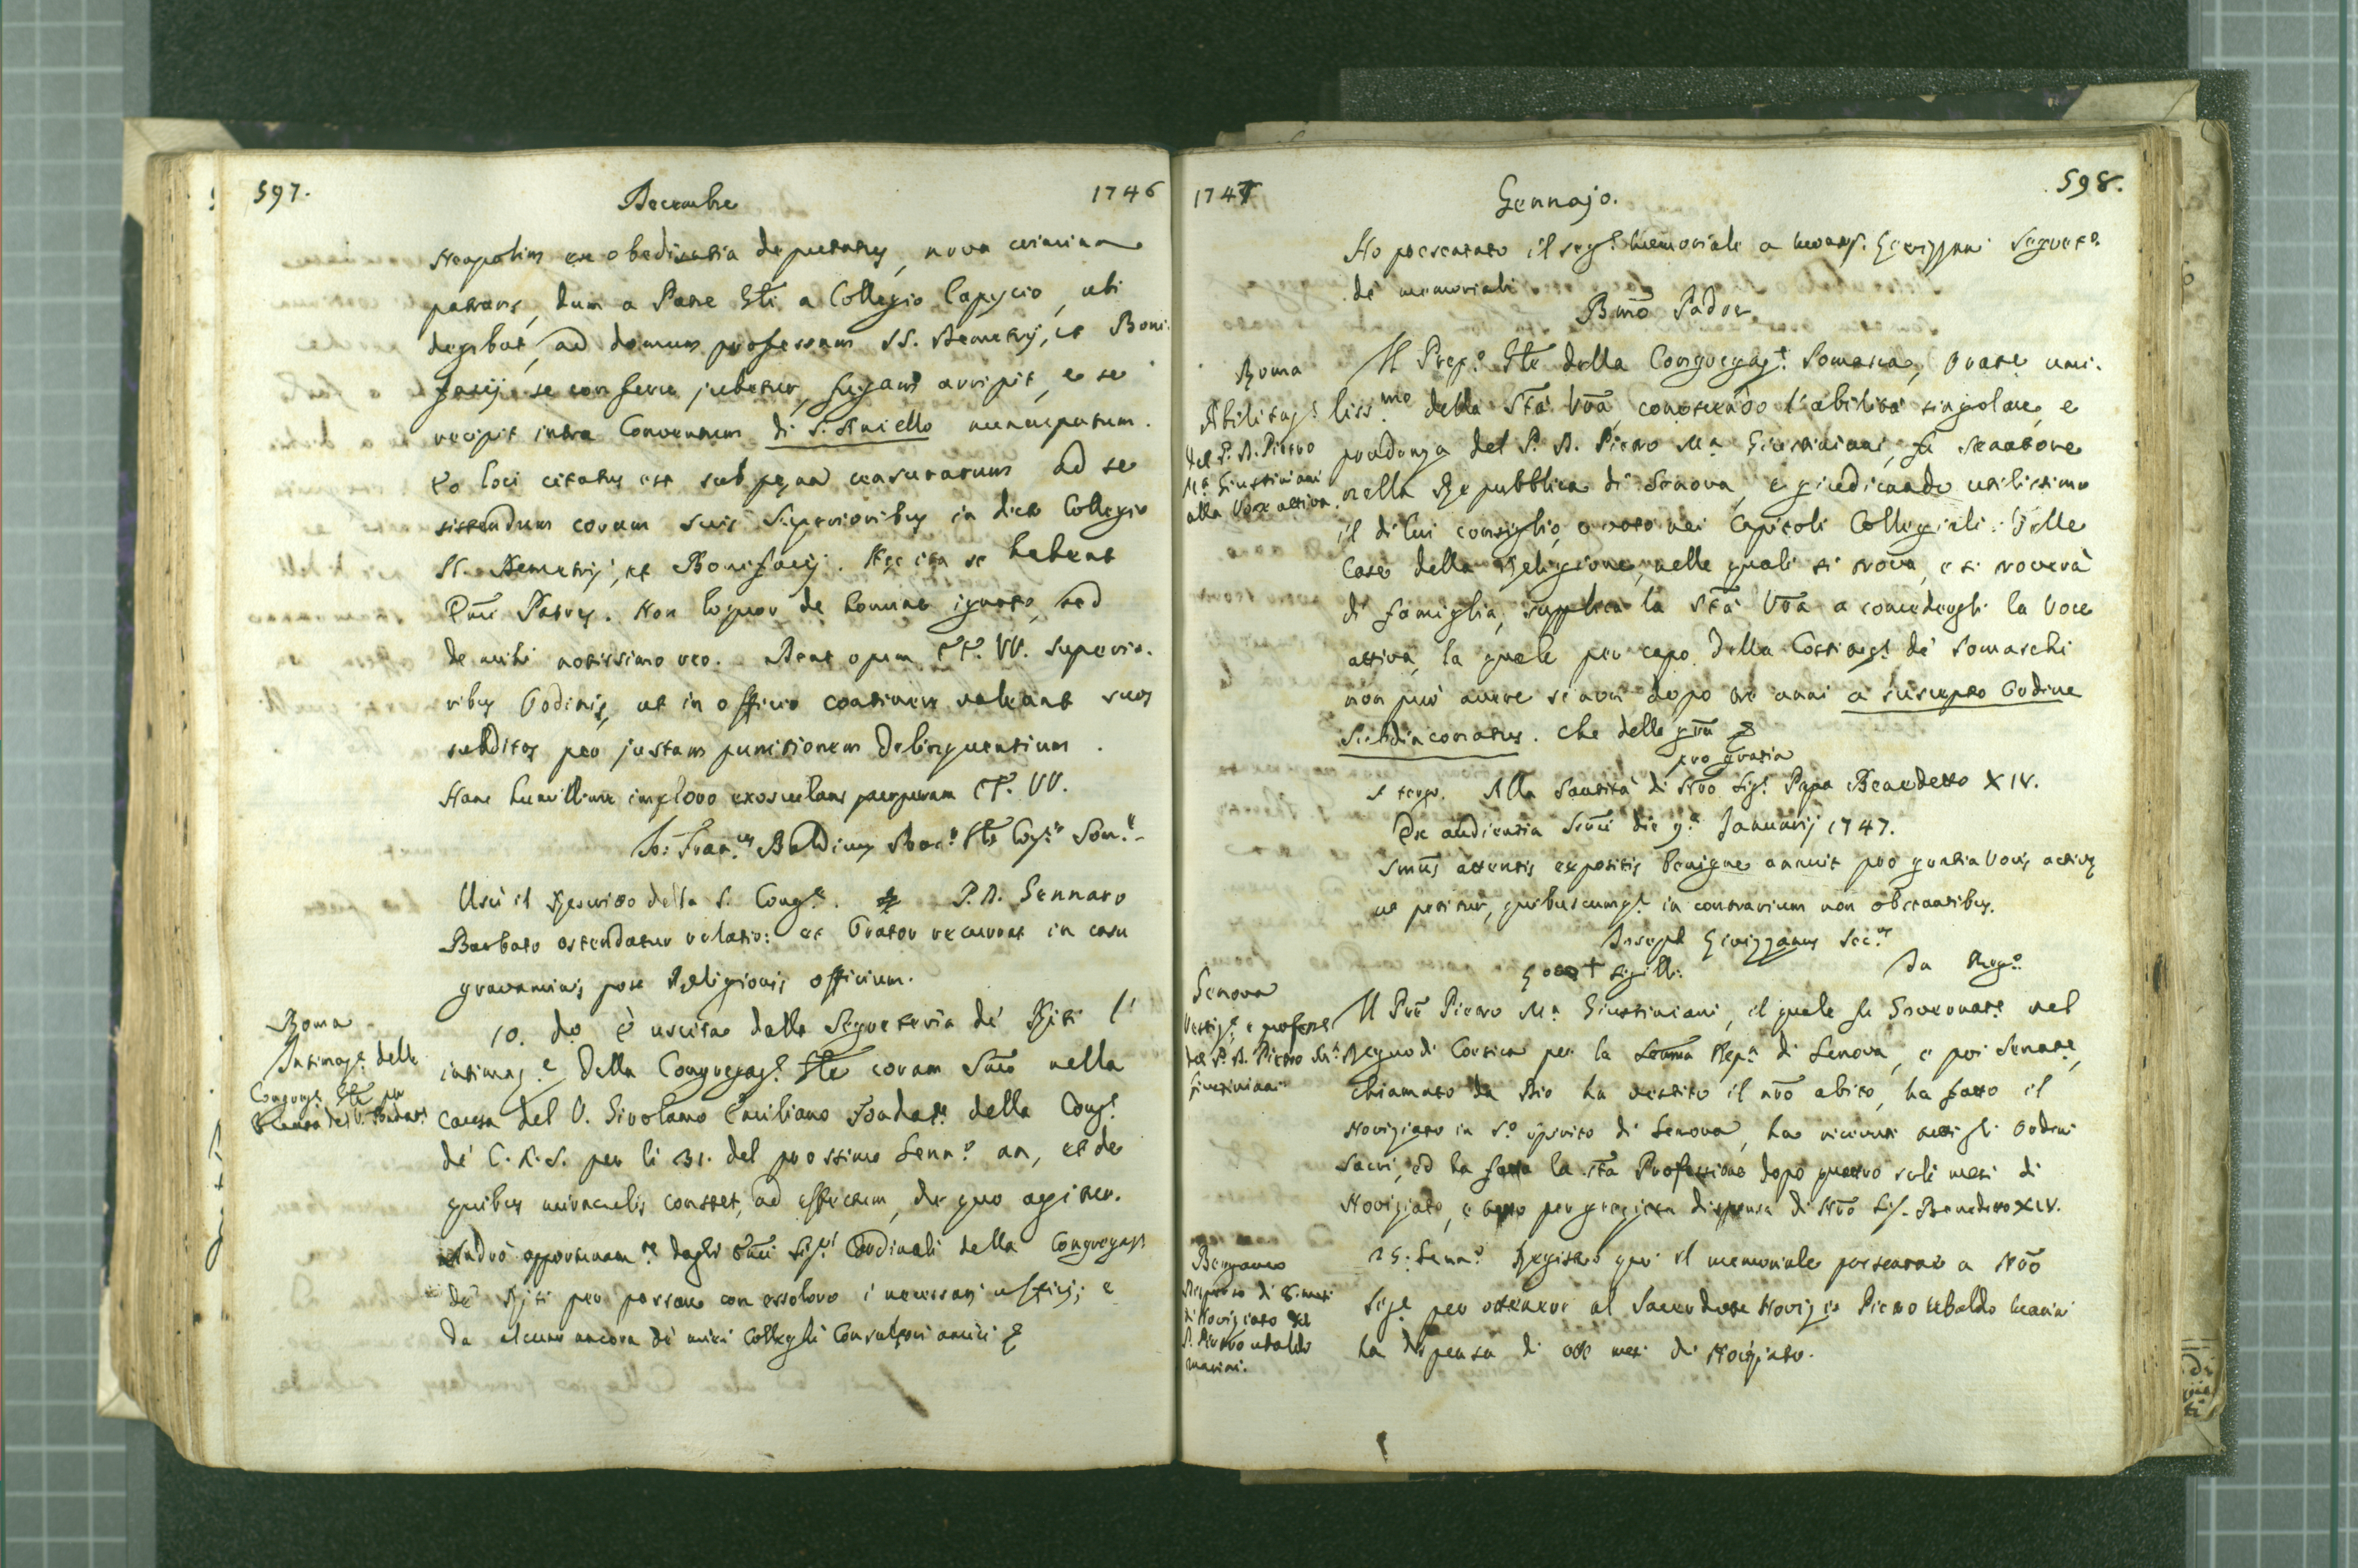 597. Decembre 1746
Neapolim ex obedientia deputatus, nova crimina
patrans, dum a Patre Gñli a Collegio Capycio, ubi
degebat, ad domum professam SS. Demetrij, et Boni-
facij se conferre jubetur, fugam arripit, e se
recipit intra Conventum di S. Aniello nuncupatum.
Eo loci citatus est sub pęna censurarum ad se
sistendum coram suis Superioribus in dicto Collegio
SS. Demetrij, et Bonifacij. Hęc ita se habent
Emi Patres. Non loquor de homine ignoto, sed
de mihi notissimo reo. Dent opem EE. VV. Superio-
ribus Ordinis, ut in officio continere valeant suos
subditos per justam punitionem delinquentium.
Hanc humillime imploro exosculans purpuram EE. VV.
Jo: Fran.cus Baldinus Proc.r Gñlis Cog.nis Som.ę
Uscì il Rescritto della S. Cong.e. P. D. Gennaro
Barbato ostendatur relatio: et Orator recurrat in casu
gravaminis post Religionis officium.
Roma
Intimaz.e della
Congreg.e Gñle per
la Causa del V. Fondat.e
10. do è uscita dalla Segreteria de' Riti l'
intimaz.e della Congregaz.e Gñle coram Smo nella
causa del V. Girolamo Emiliano Fondat.e della Cong.e
de' C. R. S. per li 31. del prossimo Genn.o an, et de
quibus miraculis constet, ad effectum, de quo agitur.
Andrò opportunam.te dagli Emi Sig.ri Cardinali della Congregaz.e
de' Riti per passare con essoloro i necessarj ufficj; e
da alcuni ancora de' miei Colleghi Consultori amici &
1747 Gennajo. 598.
Ho presentato il seg.e Memoriale a Mons.r Livizzani Segret.o
de' memoriali
Bmo Padre
Roma
Abilitaz.e
del P. D. Pietro
M.a Giustiniani
alla Voce attiva.
Il Prep.o Gñle della Congregaz.e Somasca, Orate umi-
liss.mo della Sta Vra, conoscendo l'abilità singolare, e
prudenza del P. D. Pietro M.a Giustiniani, fu Senatore
nella Repubblica di Genova, e giudicando utilissimo
il di lui consiglio, o voto nei Capitoli Collegiali delle
Case della Religione, nelle quali si trova, e si troverà
di famiglia, supplica la Sta Vra a concedergli la Voce
attiva, la quale per capo delle Costituz.i de' Somaschi
non può avere se non dopo tre anni a suscepto Ordine
Subdiaconatus. Che delle grã &
pro gratia
A tergo. Alla Santità di Nro Sig.e Papa Benedetto XIV.
Ex audientia Smi die 9.a Januarij 1747.
Smus attentis expositis benigne annuit pro gratia Vocis activę
ut petitur, quibuscumq.e in contrarium non obstantibus.
Joseph Livizzanus Sec.us
Loco + sigilli. Da Reg.o
Genova
Vestiz.e e profess.e
del P. D. Pietro M.a
Giustiniani
Il Pre Pietro M.a Giustiniani, il quale fu Governat.e nel
Regno di Corsica per la Serma Rep.a di Genova, e poi Senat.e,
chiamato da Dio ha vestito il nro abito, ha fatto il
Noviziato in S.o Spirito di Genova, ha ricevuti tutti gli Ordini
Sacri, ed ha fatta la sta Professione dopo quattro soli mesi di
Noviziato, e tutto per graziosa dispensa di Nro Sig.e Benedetto XIV.
Bergamo
Dispensa di 8. mesi
di Noviziato del
P. Pietro Ubaldo
Marini.
25: Genn.o Registro qui il memoriale presentato a Nro
Sig.e per ottenere al Sacerdote Novizio Pietro Ubaldo Marini
la dispensa di otto mesi di Noviziato.